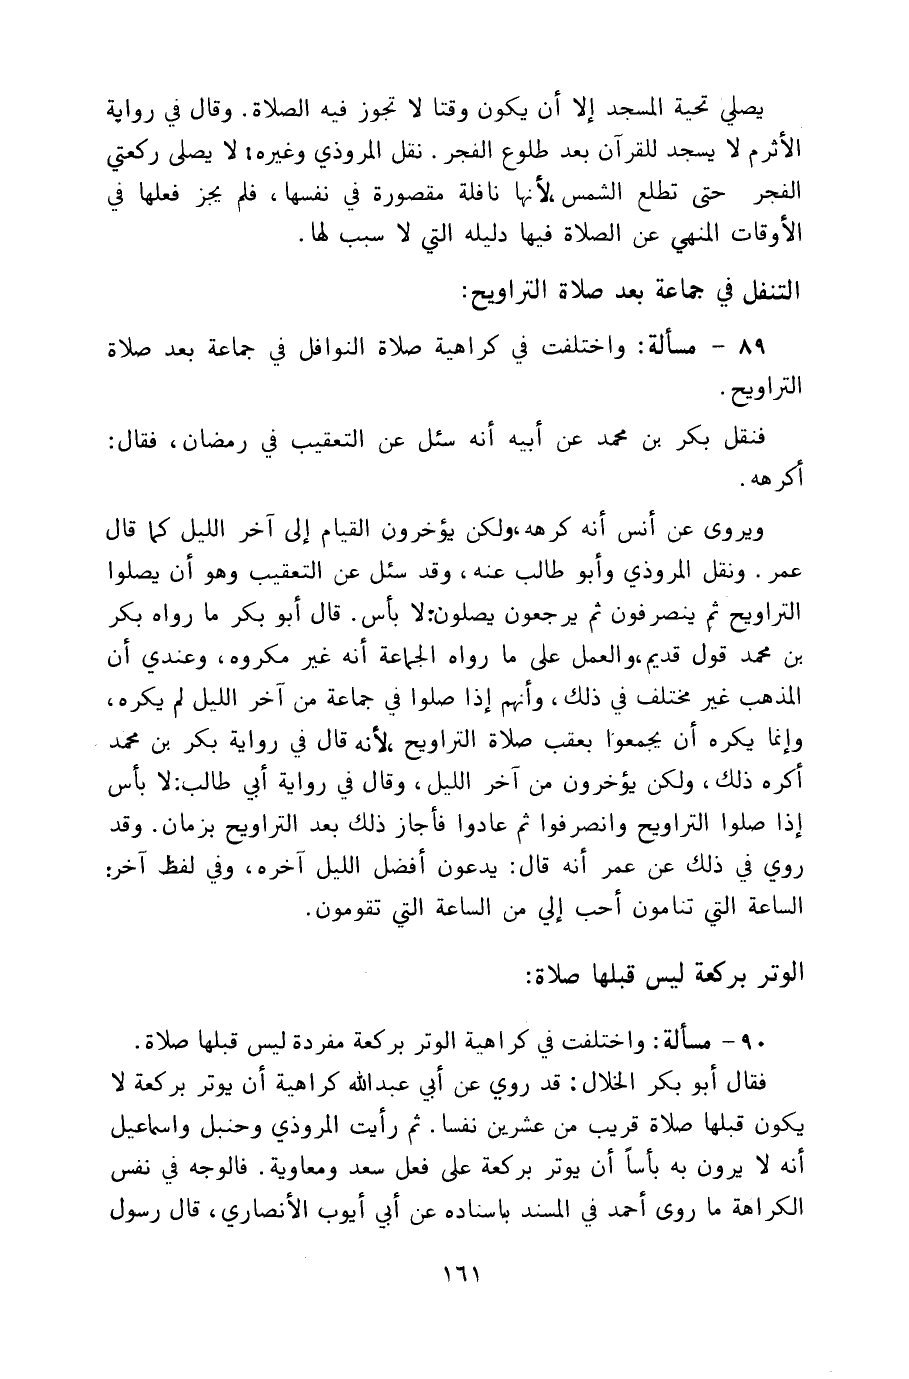 يصلي تحية المسجد إلا أن يكون وقتا لا تجوز فيه الصلاة. وقال في رواية
الأثرم لا يسجد للقرآن بعد طلوع الفجر. نقل المروذي وغيره: لا يصلى ركعتي
الفجر حتى تطلع الشمس، لأنها نافلة مقصورة في نفسها، فلم يجز فعلها في
الأوقات المنهي عن الصلاة فيها دليله التي لا سبب لها.
التنفل في جماعة بعد صلاة التراويح:
٨٩ - مسألة: واختلفت في كراهية صلاة النوافل في جماعة بعد صلاة
التراويح.
فنقل بكر بن محمد عن أبيه أنه سئل عن التعقيب في رمضان، فقال:
أكرهه.
ويروى عن أنس أنه كرهه، ولكن يؤخرون القيام إلى آخر الليل كما قال
عمر. ونقل المروذي وأبو طالب عنه، وقد سئل عن التعقيب وهو أن يصلوا
التراويح ثم ينصرفون ثم يرجعون يصلون: لا بأس. قال أبو بكر ما رواه بكر
بن محمد قول قديم، والعمل على ما رواه الجماعة أنه غير مكروه، وعندي أن
المذهب غير مختلف في ذلك، وأنهم إذا صلوا في جماعة من آخر الليل لم يكره،
وإنما يكره أن يجمعوا بعقب صلاة التراويح، لأنه قال في رواية بكر بن محمد
أكره ذلك، ولكن يؤخرون من آخر الليل، وقال في رواية أبي طالب: لا بأس
إذا صلوا التراويح وانصرفوا ثم عادوا فأجاز ذلك بعد التراويح بزمان. وقد
روي في ذلك عن عمر أنه قال: يدعون أفضل الليل آخره، وفي لفظ آخر:
الساعة التي تنامون أحب إلي من الساعة التي تقومون.
الوتر بركعة ليس قبلها صلاة:
٩٠ - مسألة: واختلفت في كراهية الوتر بركعة مفردة ليس قبلها صلاة.
فقال أبو بكر الخلال: قد روي عن أبي عبدالله كراهية أن يوتر بركعة لا
يكون قبلها صلاة قريب من عشرين نفسا. ثم رأيت المروذي وحنبل واسماعيل
أنه لا يرون به بأساً أن يوتر بركعة على فعل سعد ومعاوية. فالوجه في نفس
الكراهة ما روى أحمد في المسند باسناده عن أبي أيوب الأنصاري، قال رسول
١٦١